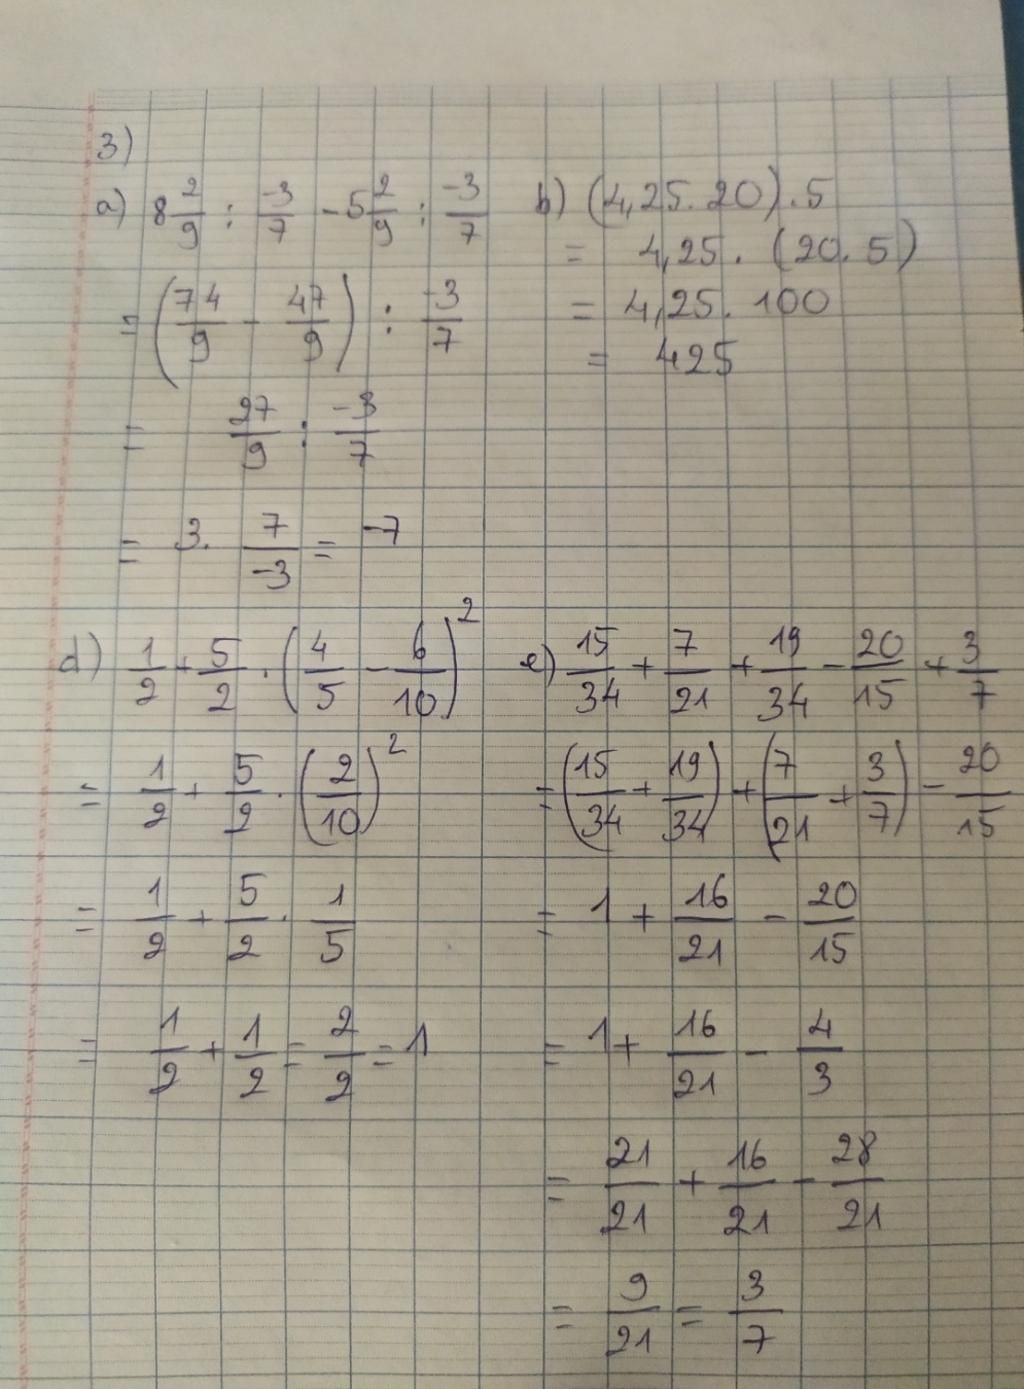 3)
a) 8 2/9 : -3/7 - 5 2/9 : -3/7
= (74/9 - 47/9) : -3/7
= 27/9 : -3/7
= 3. 7/-3 = -7
b) (4,25.20).5
= 4,25. (20.5)
= 4,25. 100
= 425
d) 1/2 + 5/2 . (4/5 - 6/10)²
= 1/2 + 5/2 . (2/10)²
= 1/2 + 5/2 . 1/5
= 1/2 + 1/2 = 2/2 = 1
e) 15/34 + 7/21 + 19/34 - 20/15 + 3/7
= (15/34 + 19/34) + (7/21 + 3/7) - 20/15
= 1 + 16/21 - 20/15
= 1 + 16/21 - 4/3
= 21/21 + 16/21 - 28/21
= 9/21 = 3/7